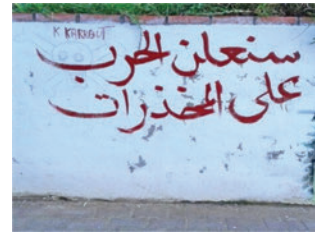 K KARKOUT
سنعلن الحرب
على المخدرات